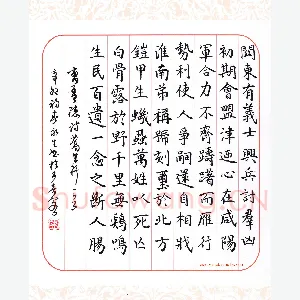 關東有義士興兵討羣凶
初期會盟津迺心在咸陽
軍合力不齊躊躇而雁行
勢利使人爭嗣還自相戕
淮南弟稱號刻璽於北方
鎧甲生蟣蝨萬姓以死亡
白骨露於野千里無鷄鳴
生民百遺一念之斷人腸
曹孟德詩蒿里行